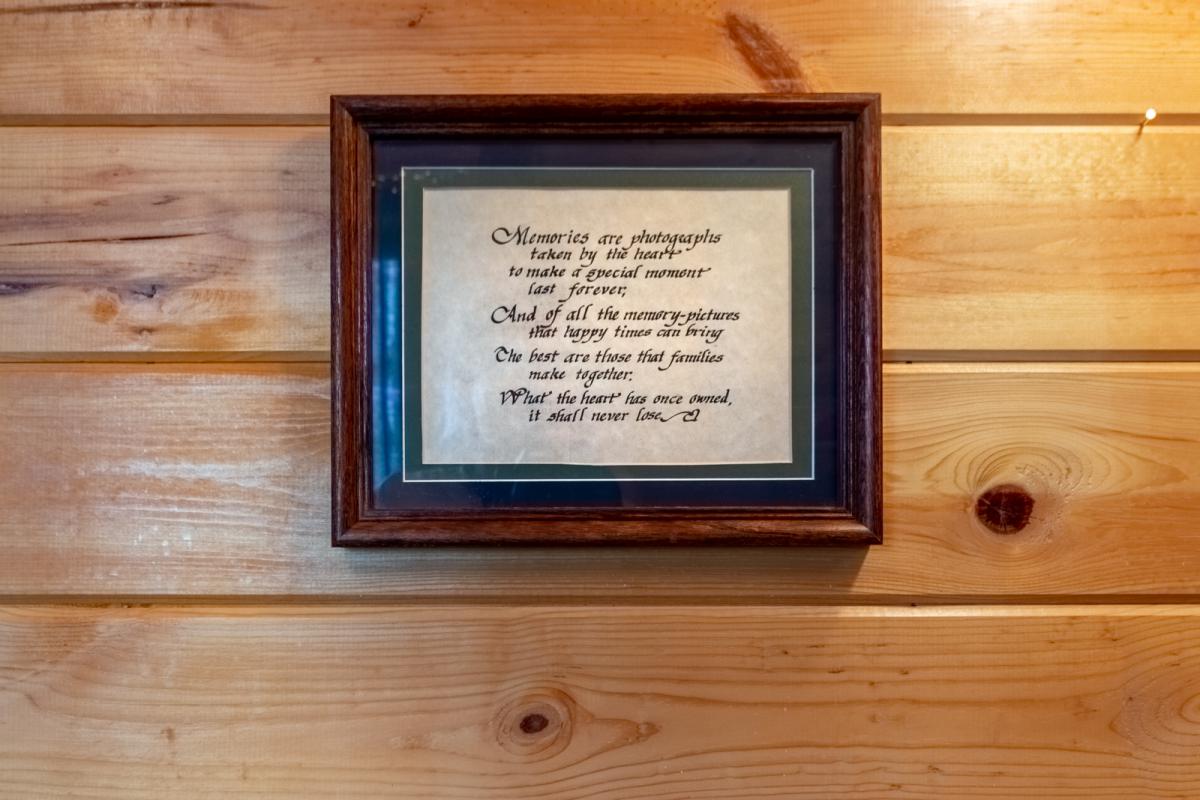 Memories are photographs
taken by the heart
to make a special moment
last forever;
And of all the memory-pictures
that happy times can bring
The best are those that families
make together:
What the heart has once owned,
it shall never lose